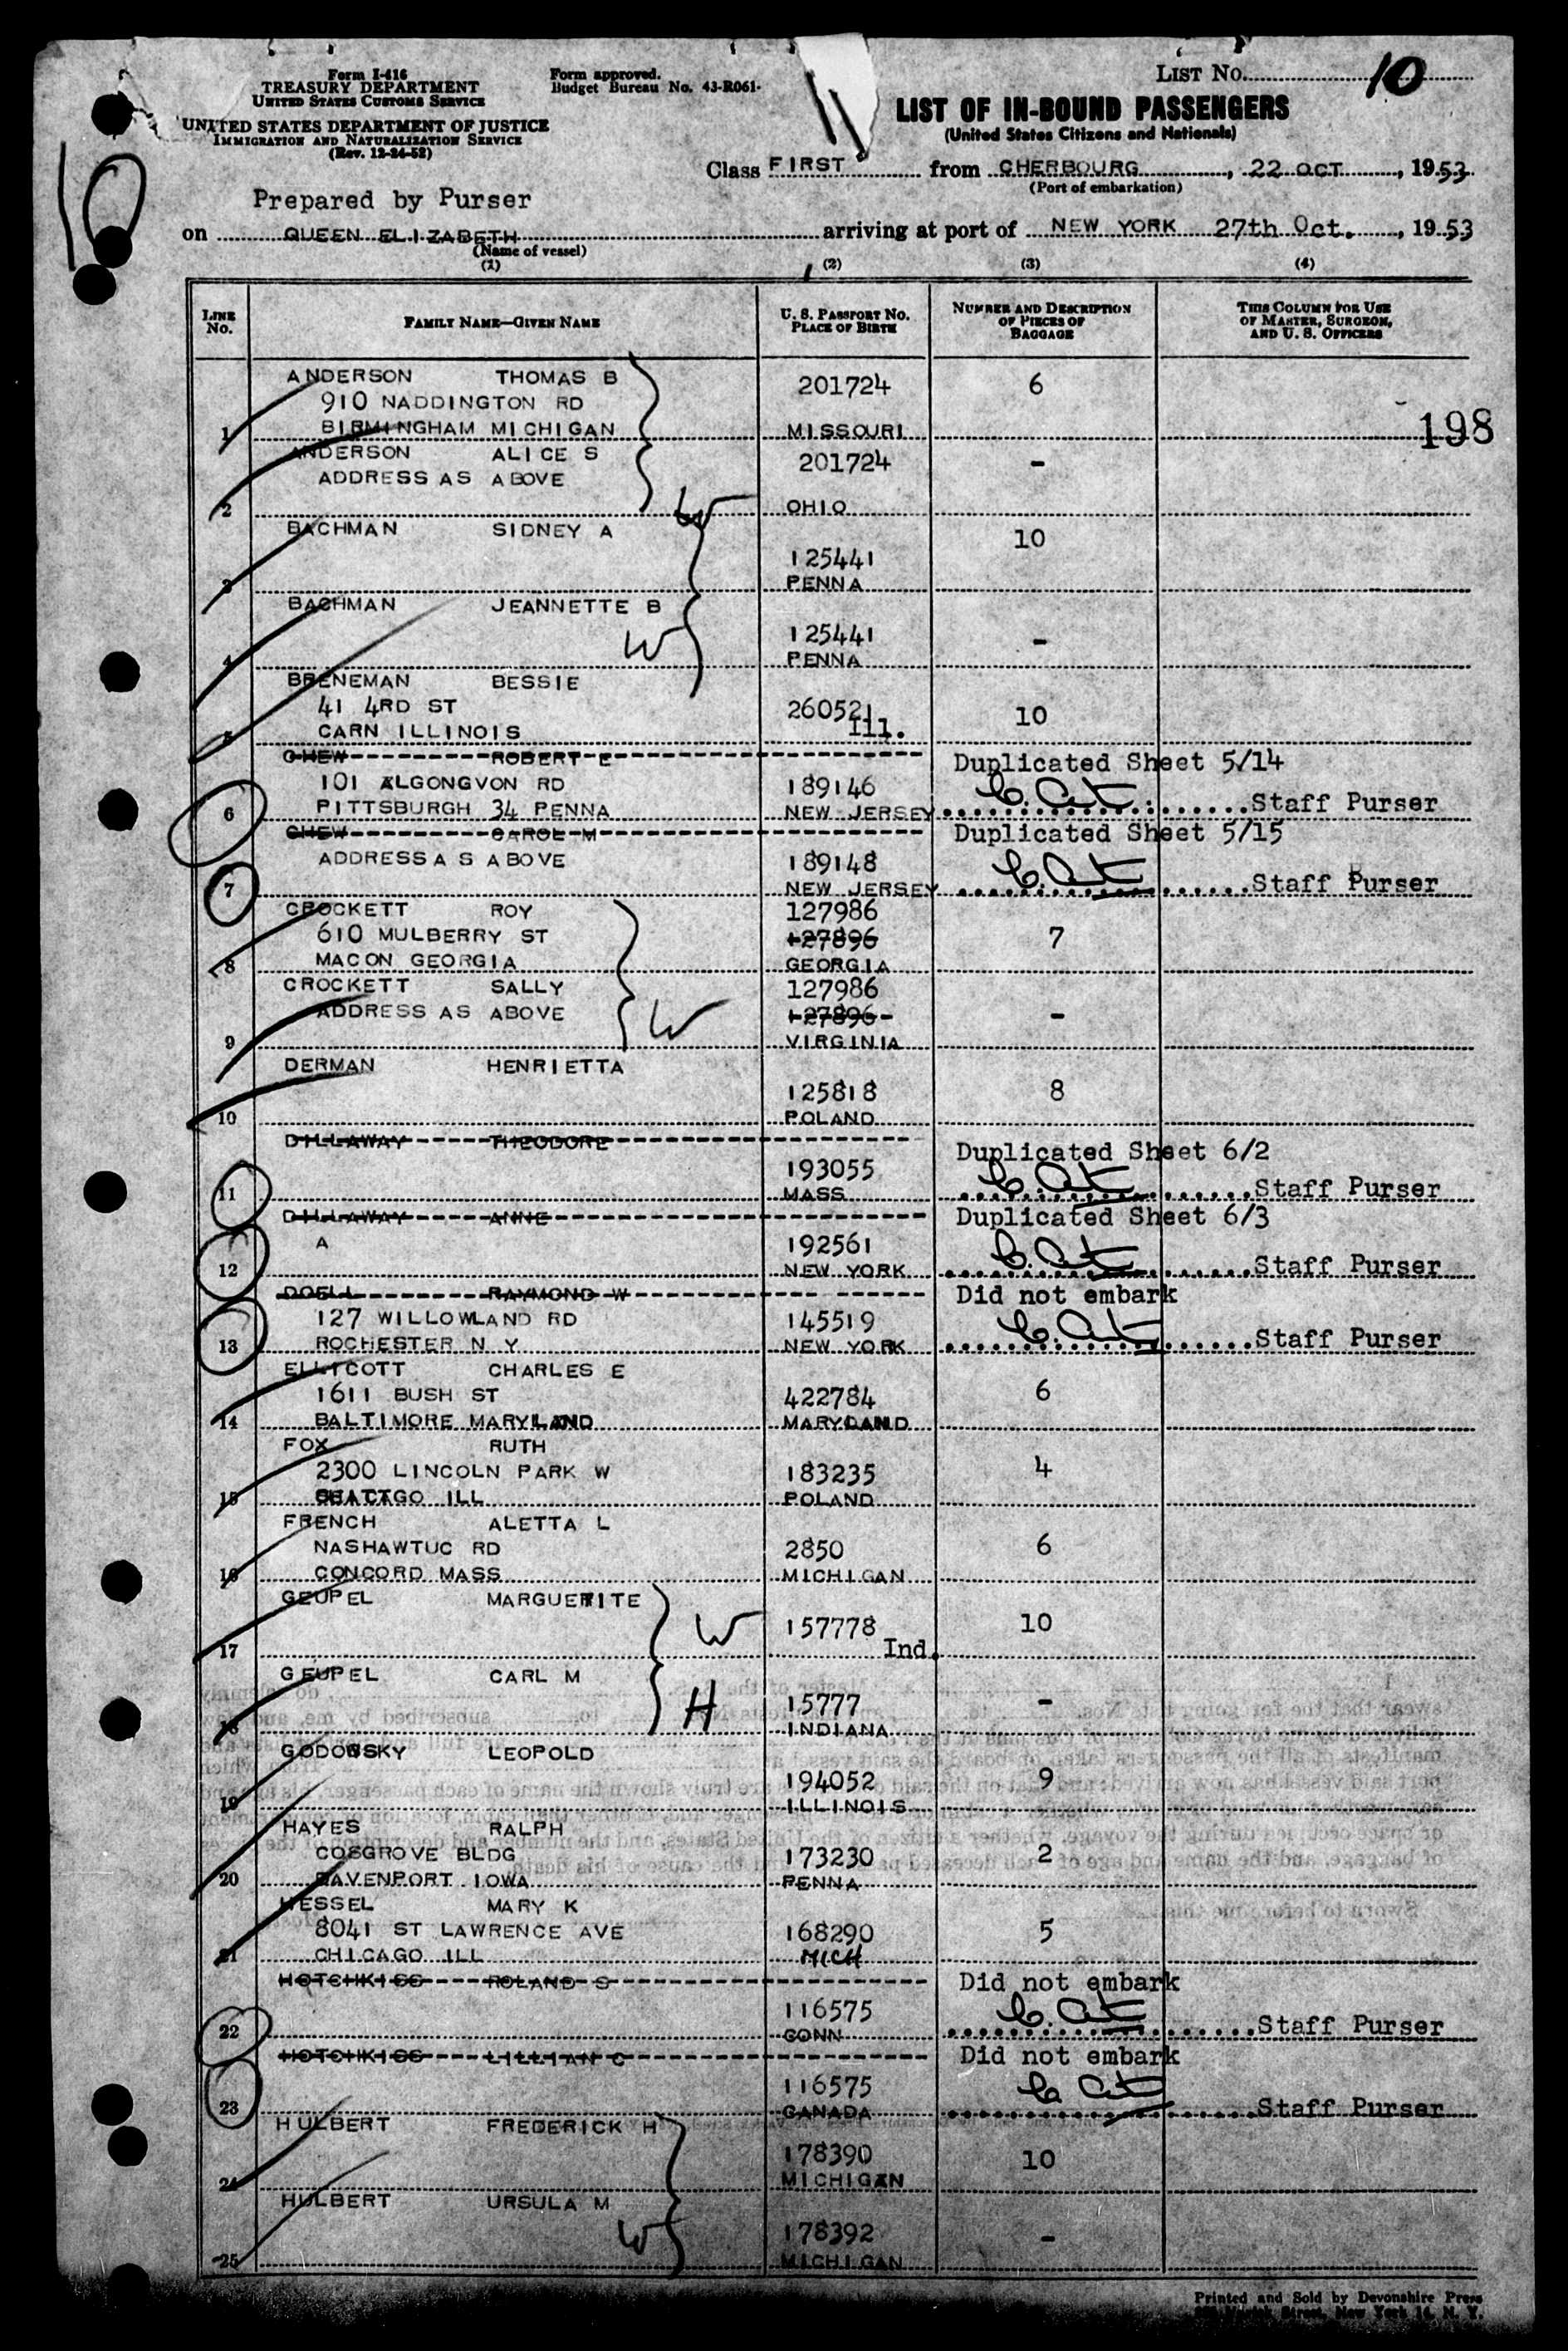 Form I-416
TREASURY DEPARTMENT
UNITED STATES CUSTOMS SERVICE
UNITED STATES DEPARTMENT OF JUSTICE
IMMIGRATION AND NATURALIZATION SERVICE
(Rev. 12-24-52)
Form approved.
Budget Bureau No. 43-R061-
LIST No. 10
LIST OF IN-BOUND PASSENGERS
(United States Citizens and Nationals)
10
Class FIRST from CHERBOURG, 22 OCT, 1953
(Port of embarkation)
Prepared by Purser
on QUEEN ELIZABETH arriving at port of NEW YORK 27th Oct., 1953
(Name of vessel)
(1) (2) (3) (4)
LINE No. FAMILY NAME—GIVEN NAME U. S. PASSPORT NO. PLACE OF BIRTH NUMBER AND DESCRIPTION OF PIECES OF BAGGAGE THIS COLUMN FOR USE OF MASTER, SURGEON, AND U. S. OFFICERS
ANDERSON THOMAS B 201724 6
910 NADDINGTON RD
1 BIRMINGHAM MICHIGAN MISSOURI 198
ANDERSON ALICE S 201724 -
ADDRESS AS ABOVE
2 W OHIO
BACHMAN SIDNEY A 10
125441
3 PENNA
BACHMAN JEANNETTE B
W 125441 -
4 PENNA
BRENEMAN BESSIE
41 4RD ST 260521 10
5 CARN ILLINOIS Ill.
CHEW ROBERT E Duplicated Sheet 5/14
101 ALGONGVON RD 189146
6 PITTSBURGH 34 PENNA NEW JERSEY Staff Purser
CHEW CAROL M Duplicated Sheet 5/15
ADDRESS AS ABOVE 189148
7 NEW JERSEY Staff Purser
CROCKETT ROY 127986
610 MULBERRY ST 127896 7
8 MACON GEORGIA GEORGIA
CROCKETT SALLY 127986
ADDRESS AS ABOVE W 127896 -
9 VIRGINIA
DERMAN HENRIETTA
125818 8
10 POLAND
DILLAWAY THEODORE Duplicated Sheet 6/2
193055
11 MASS Staff Purser
DILLAWAY ANNE Duplicated Sheet 6/3
A 192561
12 NEW YORK Staff Purser
DOELL RAYMOND W Did not embark
127 WILLOWLAND RD 145519
13 ROCHESTER N Y NEW YORK Staff Purser
ELLICOTT CHARLES E
1611 BUSH ST 422784 6
14 BALTIMORE MARYLAND MARYLAND
FOX RUTH
2300 LINCOLN PARK W 183235 4
15 CHICAGO ILL POLAND
FRENCH ALETTA L
NASHAWTUC RD 2850 6
16 CONCORD MASS MICHIGAN
GEUPEL MARGUERITE
W 157778 10
17 Ind.
GEUPEL CARL M
H 15777 -
18 INDIANA
GODOWSKY LEOPOLD
194052 9
19 ILLINOIS
HAYES RALPH
COSGROVE BLDG 173230 2
20 DAVENPORT IOWA PENNA
HESSEL MARY K
8041 ST LAWRENCE AVE 168290 5
21 CHICAGO ILL MICH
HOTCHKISS ROLAND S Did not embark
116575
22 CONN Staff Purser
HOTCHKISS LILLIAN C Did not embark
116575
23 CANADA Staff Purser
HULBERT FREDERICK H
178390 10
24 MICHIGAN
HULBERT URSULA M
W 178392 -
25 MICHIGAN
Printed and Sold by Devonshire Press
New York 14, N. Y.